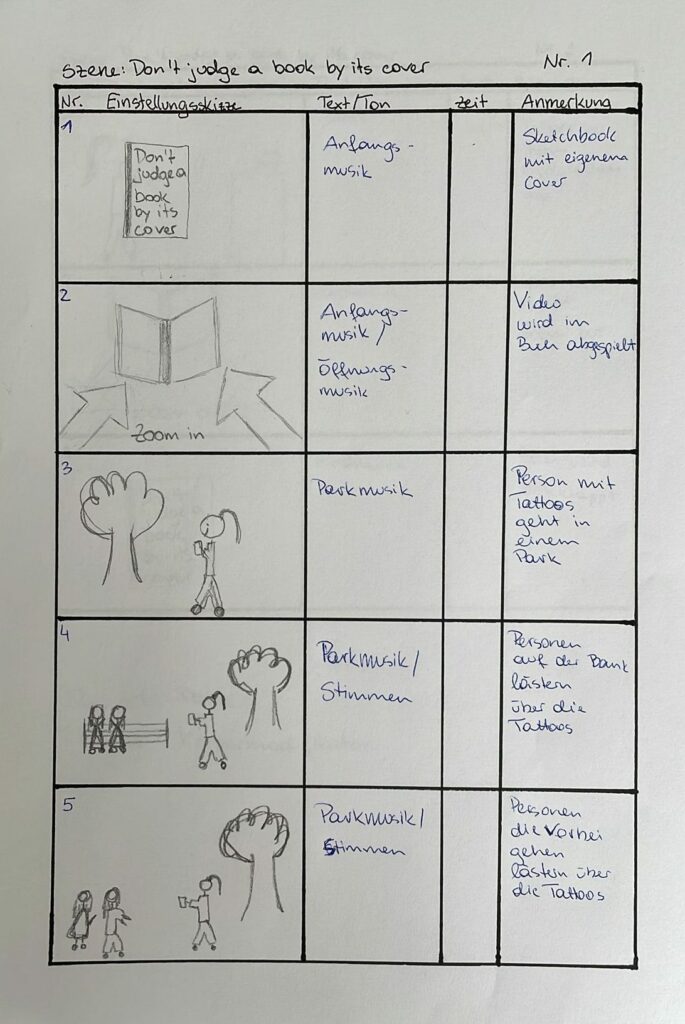 Szene: Don't judge a book by its cover
Nr. 1
Nr. Einstellungsskizze
Text/Ton
Zeit
Anmerkung
1
Don't
judge a
book
by its
cover
Anfangs-
musik
Sketchbook
mit eigenem
Cover
2
Zoom in
Anfangs-
musik/
Öffnungs-
musik
Video
wird im
Buch abgespielt
3
Parkmusik
Person mit
Tattoos
geht in
einem
Park
4
Parkmusik/
Stimmen
Personen
auf der Bank
lästern
über die
Tattoos
5
Parkmusik/
Stimmen
Personen
die vorbei
gehen
lästern über
die Tattoos